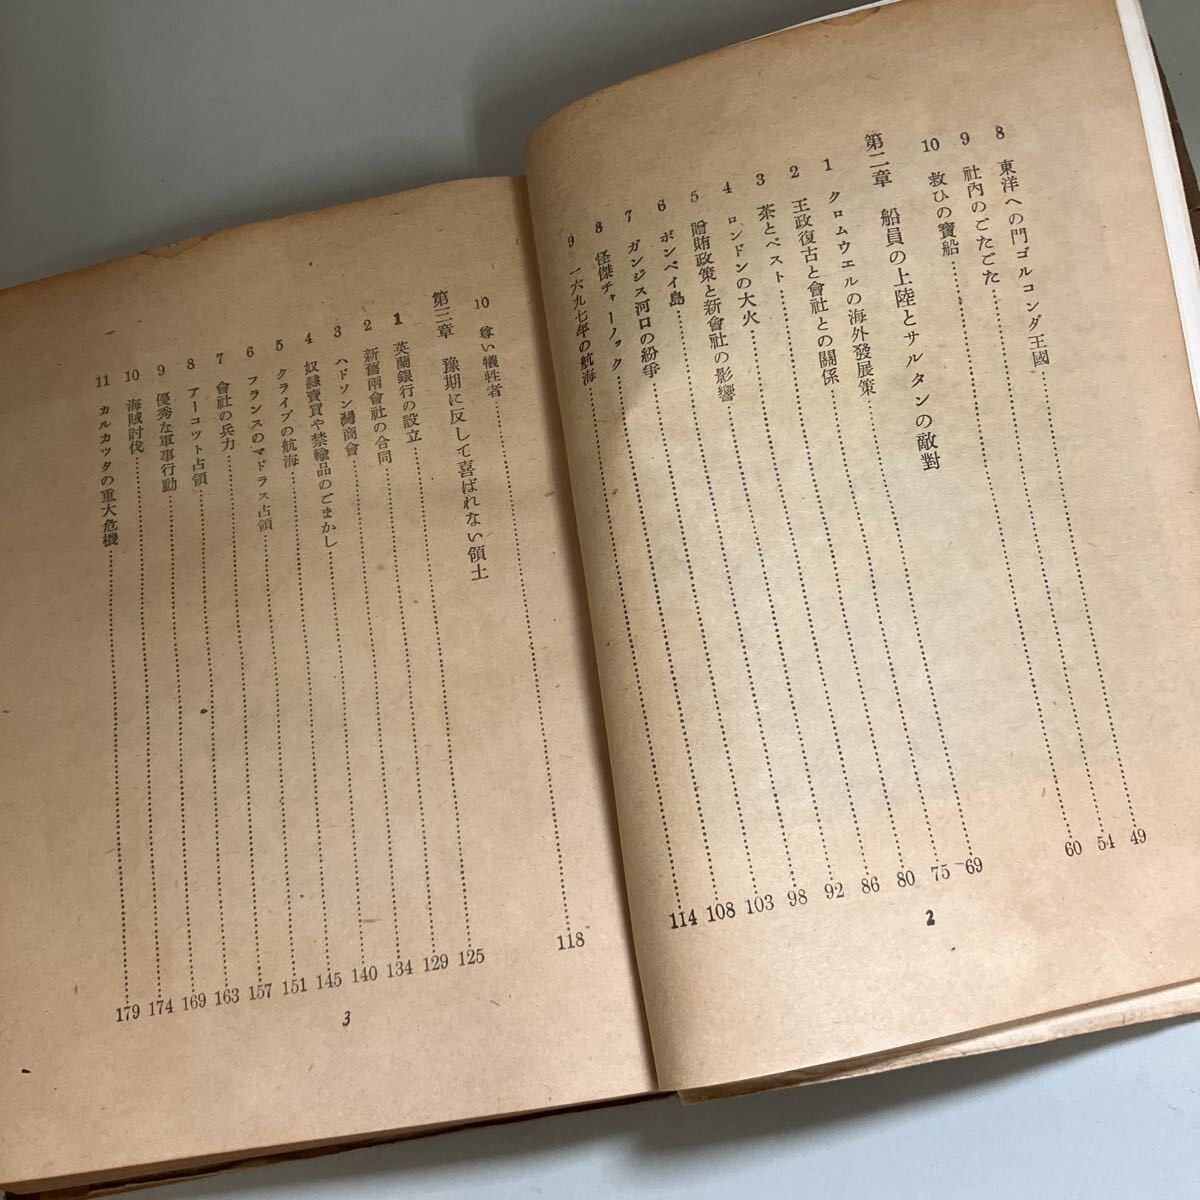 8 東洋への門ゴルコンダ王國 49
9 社内のごたごた 54
10 救ひの寶船 60
第二章 船員の上陸とサルタンの敵對
1 クロムウエルの海外發展策 69
2 王政復古と會社との關係 75
3 茶とペスト 80
4 ロンドンの大火 86
5 贈賄政策と新會社の影響 92
6 ボンベイ島 98
7 ガンジス河口の紛爭 103
8 怪傑チャーノック 108
9 一六九七年の航海 114
2
10 尊い犠牲者 118
第三章 豫期に反して喜ばれない領土
1 英蘭銀行の設立 125
2 新舊兩會社の合同 129
3 ハドソン灣商會 134
4 奴隷賣買や禁輸品のごまかし 140
5 クライブの航海 145
6 フランスのマドラス占領 151
7 會社の兵力 157
8 アーコット占領 163
9 優秀な軍事行動 169
10 海賊討伐 174
11 カルカツタの重大危機 179
3